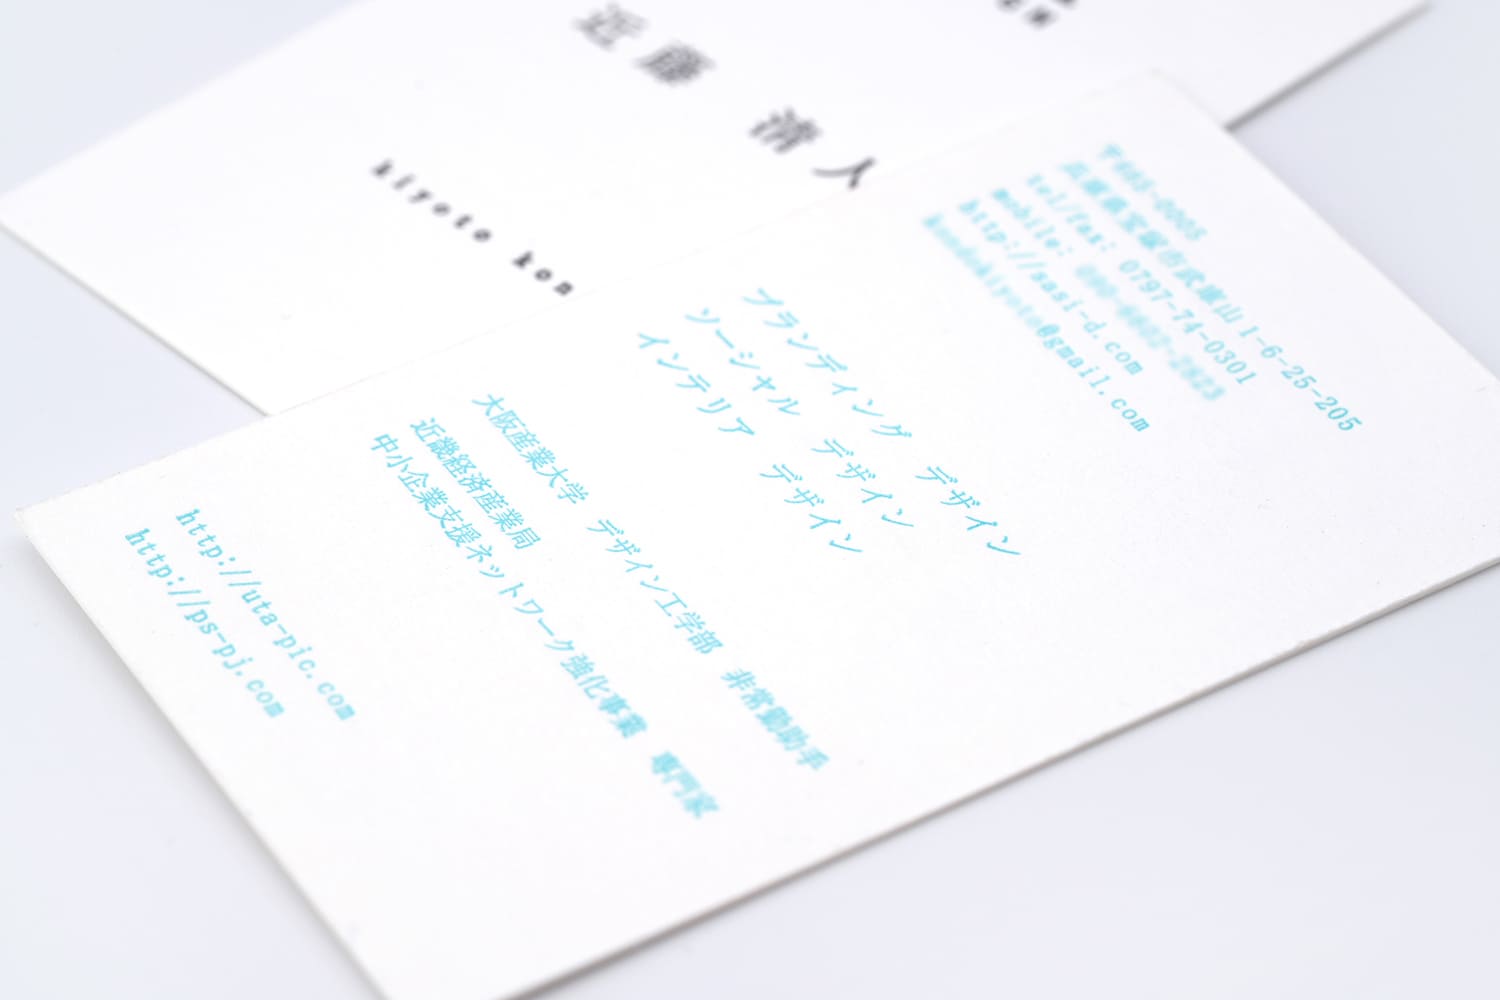 近藤 清人
kiyoto kon
tel/fax: 0797-74-0301
mobile:
http://sasi-d.com
@gmail.com
ブランディング デザイン
ソーシャル デザイン
インテリア デザイン
大阪産業大学 デザイン工学部 非常勤助手
近畿経済産業局
中小企業支援ネットワーク強化事業 専門家
http://uta-pic.com
http://ps-pj.com